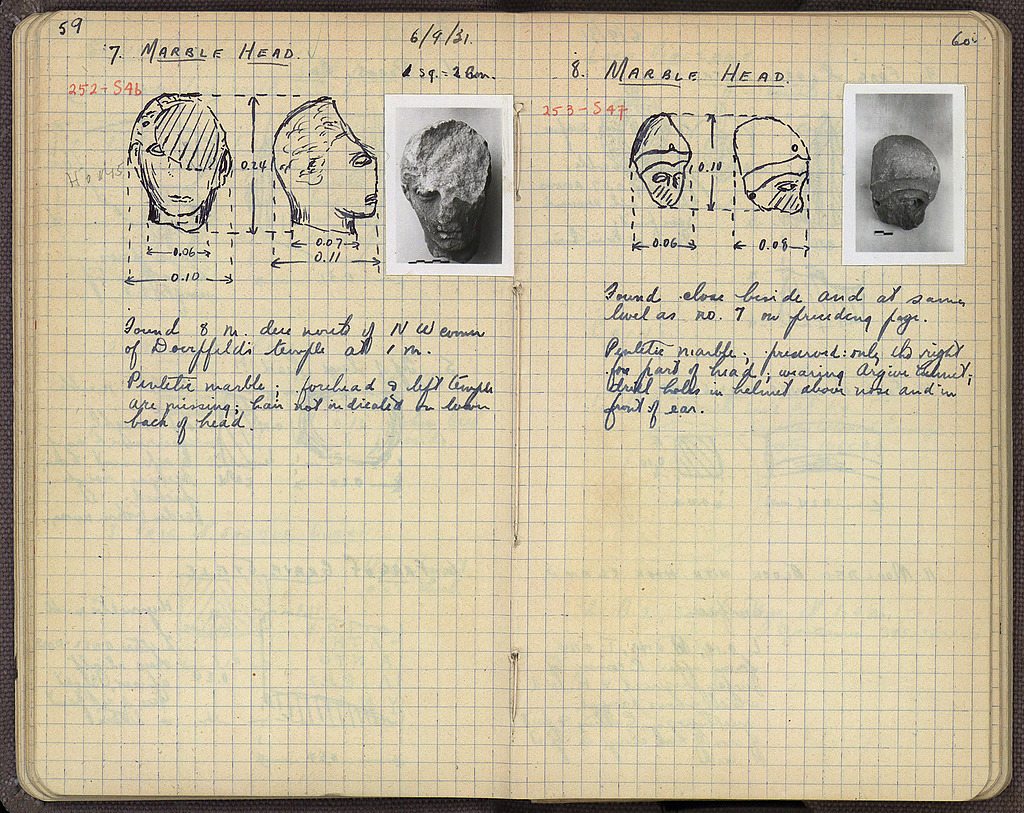 59
7. MARBLE HEAD.
6/9/31.
1 sq. = 2 cm.
252-S46
0.24
0.06
0.10
0.07
0.11
Found 8 m. due north of NW corner
of Doerpfeld's temple at 1 m.
Pentelic marble; forehead & left temple
are missing; hair not indicated on lower
back of head.
60
8. MARBLE HEAD.
253-S47
0.10
0.06
0.08
Found close beside and at same
level as no. 7 on preceding page.
Pentelic marble; preserved: only the right
fore part of head, wearing Argive helmet;
drill holes in helmet above nose and in
front of ear.